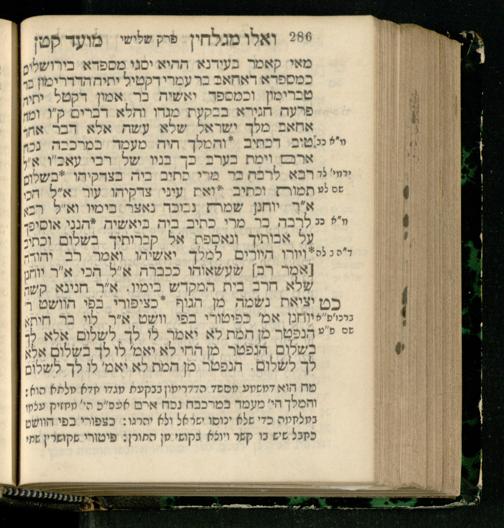 286 ואלו מגלחין פרק שלישי מועד קטן
מאי קאמר בעידנא ההיא יסגי מספדא בירושלים
כמספדא דאחאב בר עמרי דקטיל יתיה הדדרימון בר
טברימון וכמספד יאשיה בר אמון דקטל יתיה
פרעה חגירא בבקעת מגדו והלא דברים ק"ו ומה
אחאב מלך ישראל שלא עשה אלא דבר אחד
מ"א כב] טוב דכתיב *והמלך היה מעמד במרכבה נכח
ארם וימת בערב כך בניו של רבי עאכ"ו א"ל
ירמי' לד רבא לרבה בר מרי כתיב ביה בצדקיהו *בשלום
שם לט תמות וכתיב *ואת עיני צדקיהו עור א"ל הכי
א"ר יוחנן שמת נבוכד נאצר בימיו וא"ל רבא
מ"א כב לרבה בר מרי כתיב ביה ביאשיה *הנני אוסיפך
על אבותיך ונאספת אל קברותיך בשלום וכתיב
ד"ה ב לה *ויורו היורים למלך יאשיהו ואמר רב יהודה
[אמר רב] שעשאוהו ככברה א"ל הכי א"ר יוחנן
שלא חרב בית המקדש בימיו. א"ר חנינא קשה
כט יציאת נשמה מן הגוף *כציפורי בפי הוושט ר'
יוחנן אמ' כפיטורי בפי וושט א"ר לוי בר חיתא
שם הנפטר מן המת לא יאמר לו לך לשלום אלא לך
בשלום הנפטר מן החי לא יאמ' לו לך בשלום אלא
לך לשלום. הנפטר מן המת לא יאמ' לו לך לשלום
והמלך הי' מעמד במרכבה נכח ארם
כדי שלא ינוסו ישראל ולא יהרגו: כצפורי בפי הוושט
כחבל שיש בו קשר ויוצא בקושי מן התורן: פיטורי